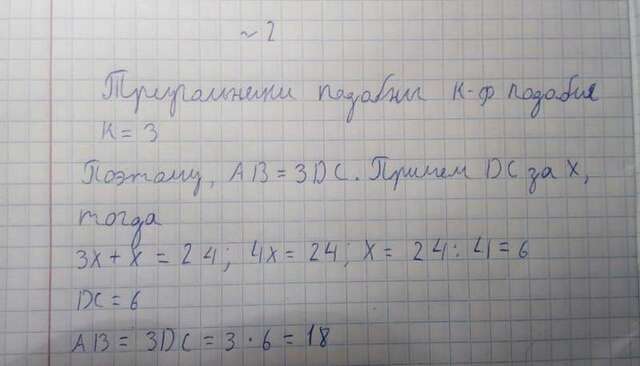 ~ 2
Треугольники подобны к-ф подобия
К = 3
Поэтому, AB = 3DC. Примем DC за X,
тогда
3x + x = 24; 4x = 24; x = 24 : 4 = 6
DC = 6
AB = 3DC = 3 · 6 = 18